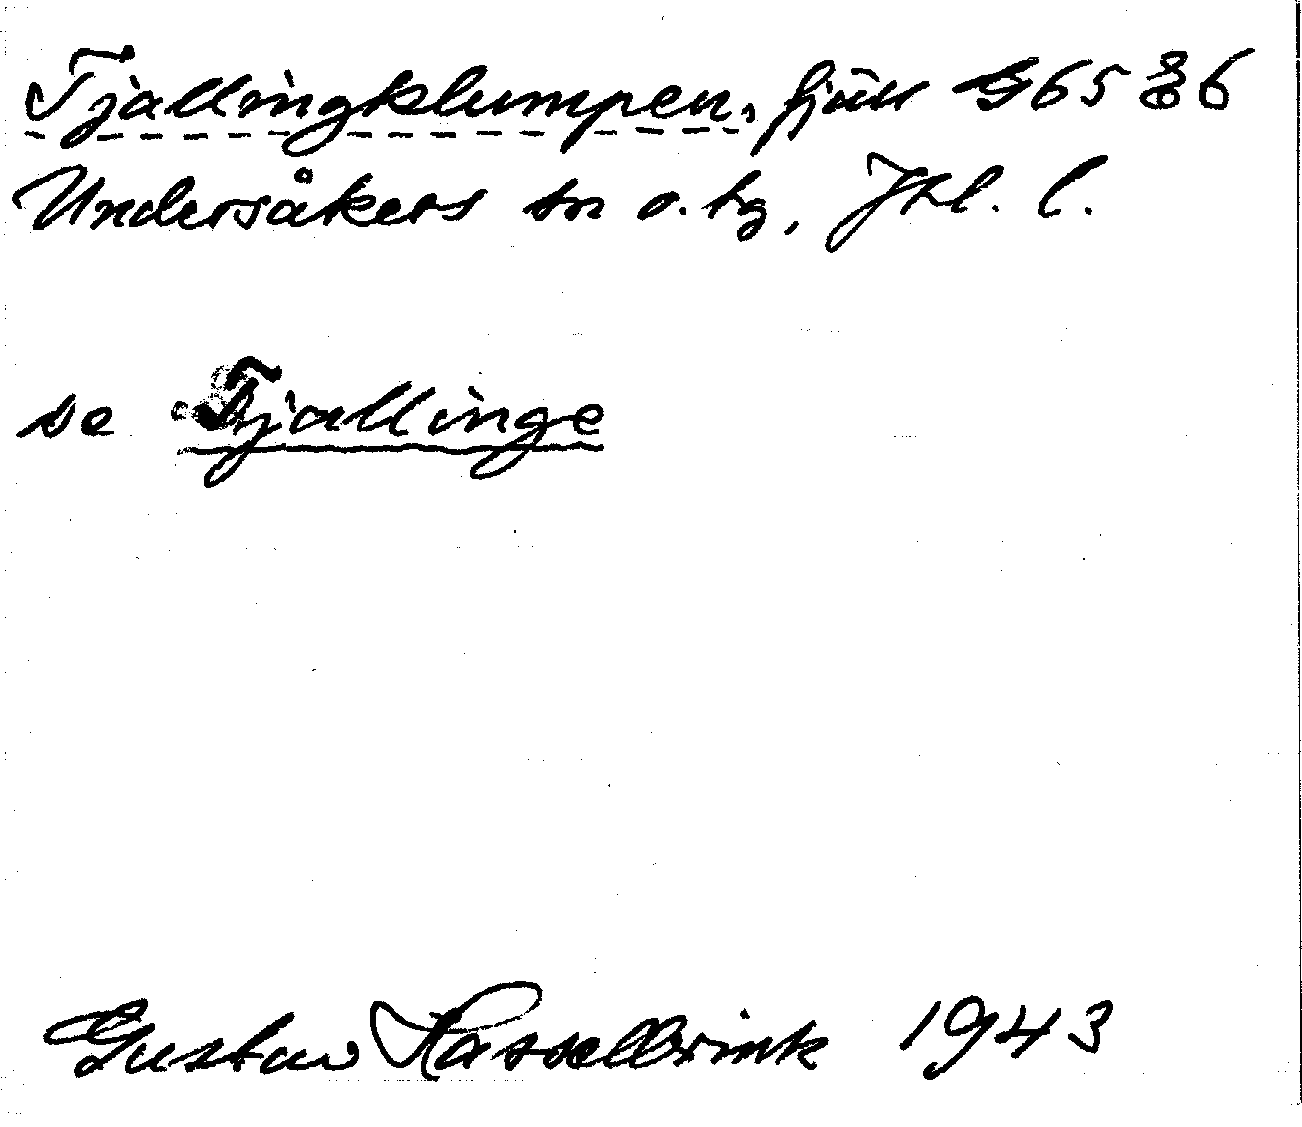 Tjallingklumpen, fjäll G65 86
Undersåkers sn o. tg, Jtl. l.
se Tjallinge
Gustav Hasselbrink 1943